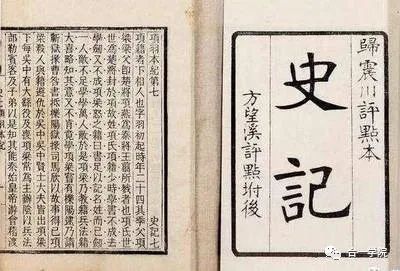 歸震川評點本
史記
方望溪評點坿後
項羽本紀第七 史記七
項籍者下相人也字羽初起時年二十四其季父項
梁梁父即楚將項燕為秦將王翦所戮者也項氏世
世為楚將封於項故姓項氏項籍少時學書不成去
學劍又不成項梁怒之籍曰書足以記名姓而已劍
一人敵不足學學萬人敵於是項梁乃教籍兵法籍
大喜略知其意又不肯竟學項梁嘗有櫟陽逮乃請
蘄獄掾曹咎書抵櫟陽獄掾司馬欣以故事得已項
梁殺人與籍避仇於吳中吳中賢士大夫皆出項梁
下每吳中有大繇役及喪項梁常為主辦陰以兵法
部勒賓客及子弟以是知其能秦始皇帝游會稽渡
合一学院